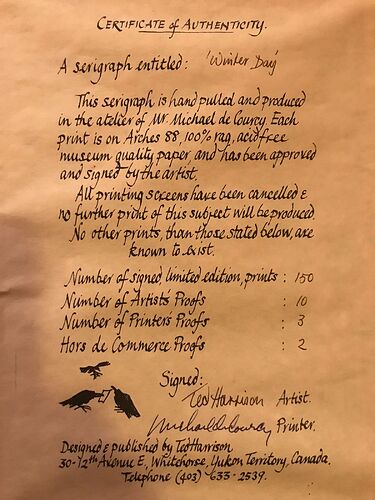 CERTIFICATE of AUTHENTICITY.
A serigraph entitled: 'Winter Day'
This serigraph is hand pulled and produced
in the atelier of Mr. Michael de Courcy. Each
print is on Arches 88, 100% rag, acid free
museum quality paper, and has been approved
and signed by the artist.
All printing screens have been cancelled &
no further print of this subject will be produced.
No other prints, than those stated below, are
known to exist.
Number of signed limited edition, prints : 150
Number of Artist's Proofs : 10
Number of Printers Proofs : 3
Hors de Commerce Proofs : 2
Signed:
Ted Harrison Artist.
Michael de Courcy Printer.
Designed & published by Ted Harrison
30-12th Avenue E, Whitehorse, Yukon Territory, Canada.
Telephone (403) 633-2539.